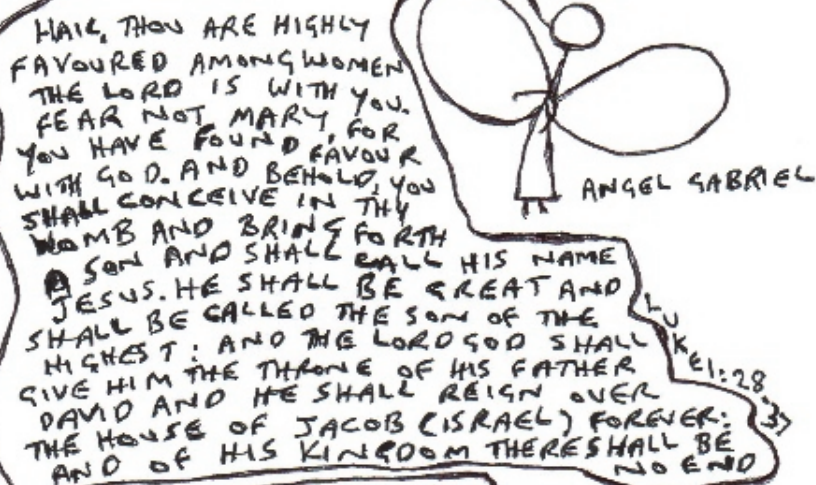 HAIL, THOU ARE HIGHLY
FAVOURED AMONG WOMEN
THE LORD IS WITH YOU.
FEAR NOT MARY, FOR
YOU HAVE FOUND FAVOUR
WITH GOD. AND BEHOLD, YOU
SHALL CONCEIVE IN THY
WOMB AND BRING FORTH
A SON AND SHALL CALL HIS NAME
JESUS. HE SHALL BE GREAT AND
SHALL BE CALLED THE SON OF THE
HIGHEST: AND THE LORD GOD SHALL
GIVE HIM THE THRONE OF HIS FATHER
DAVID AND HE SHALL REIGN OVER
THE HOUSE OF JACOB (ISRAEL) FOREVER:
AND OF HIS KINGDOM THERE SHALL BE
NO END
ANGEL GABRIEL
LUKE 1:28-37